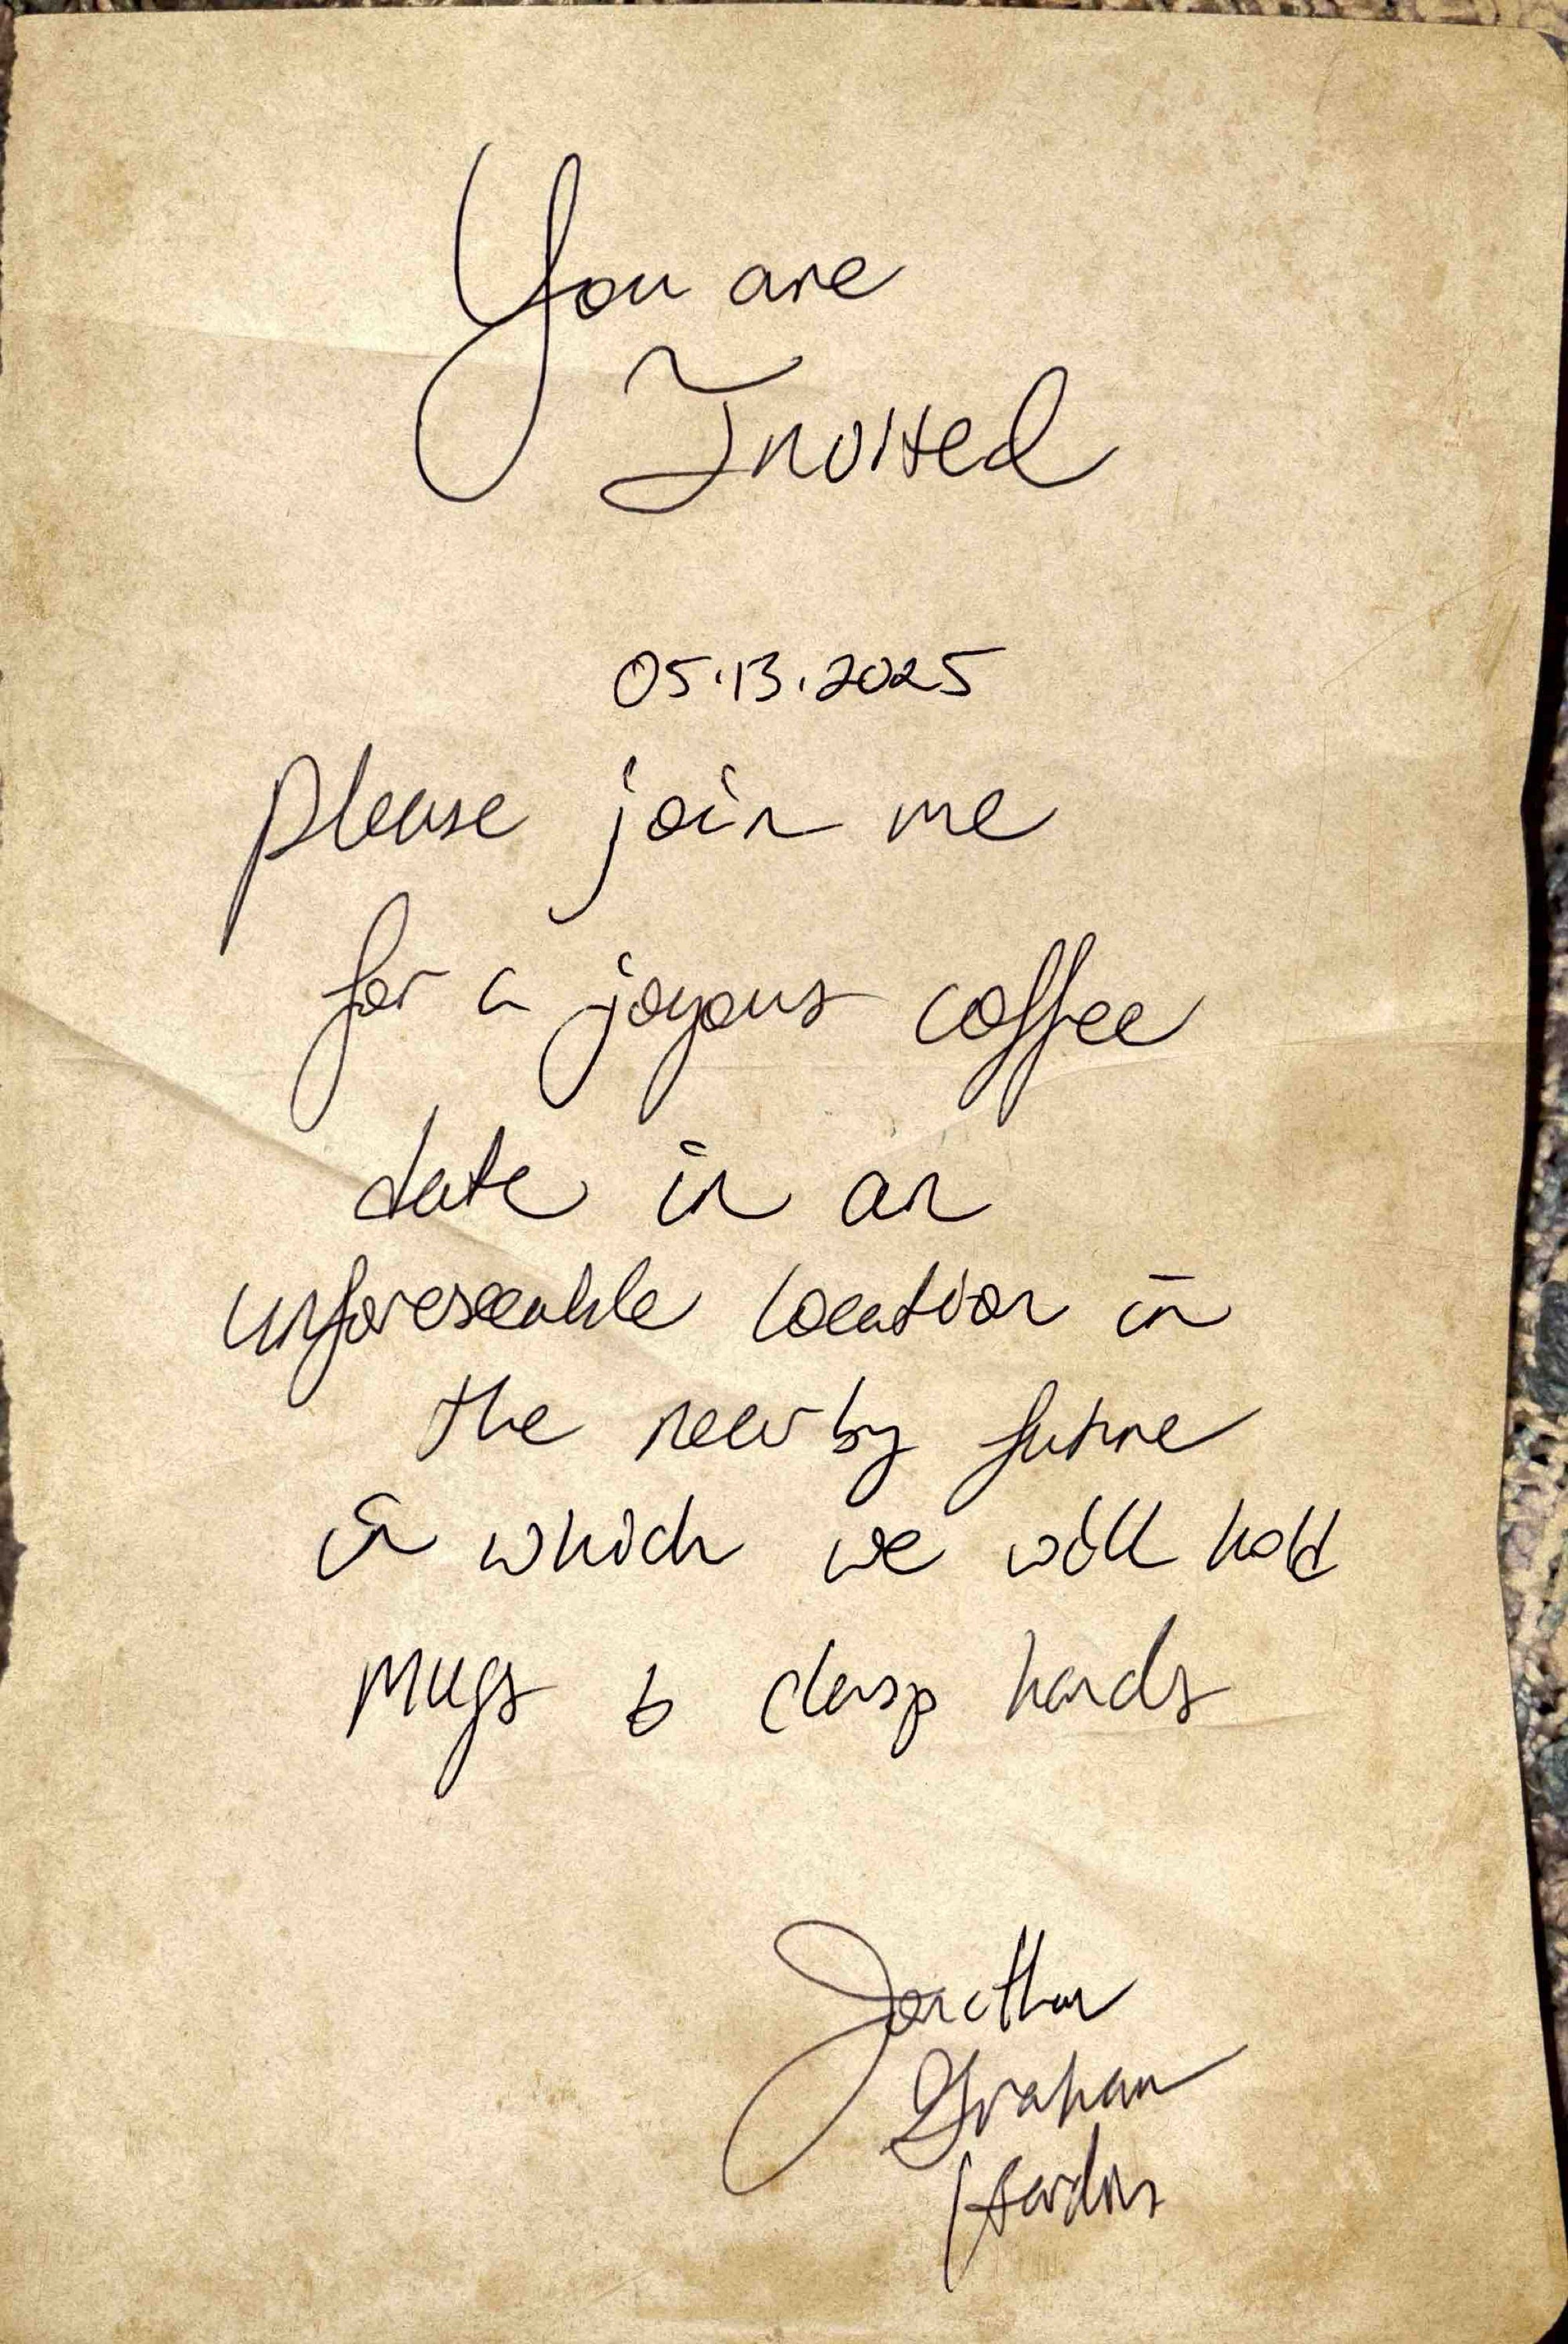 You are
Invited
05.13.2025
please join me
for a joyous coffee
date in an
unforeseeable location in
the nearby future
in which we will hold
mugs & clasp hands
Jonathan
Graham